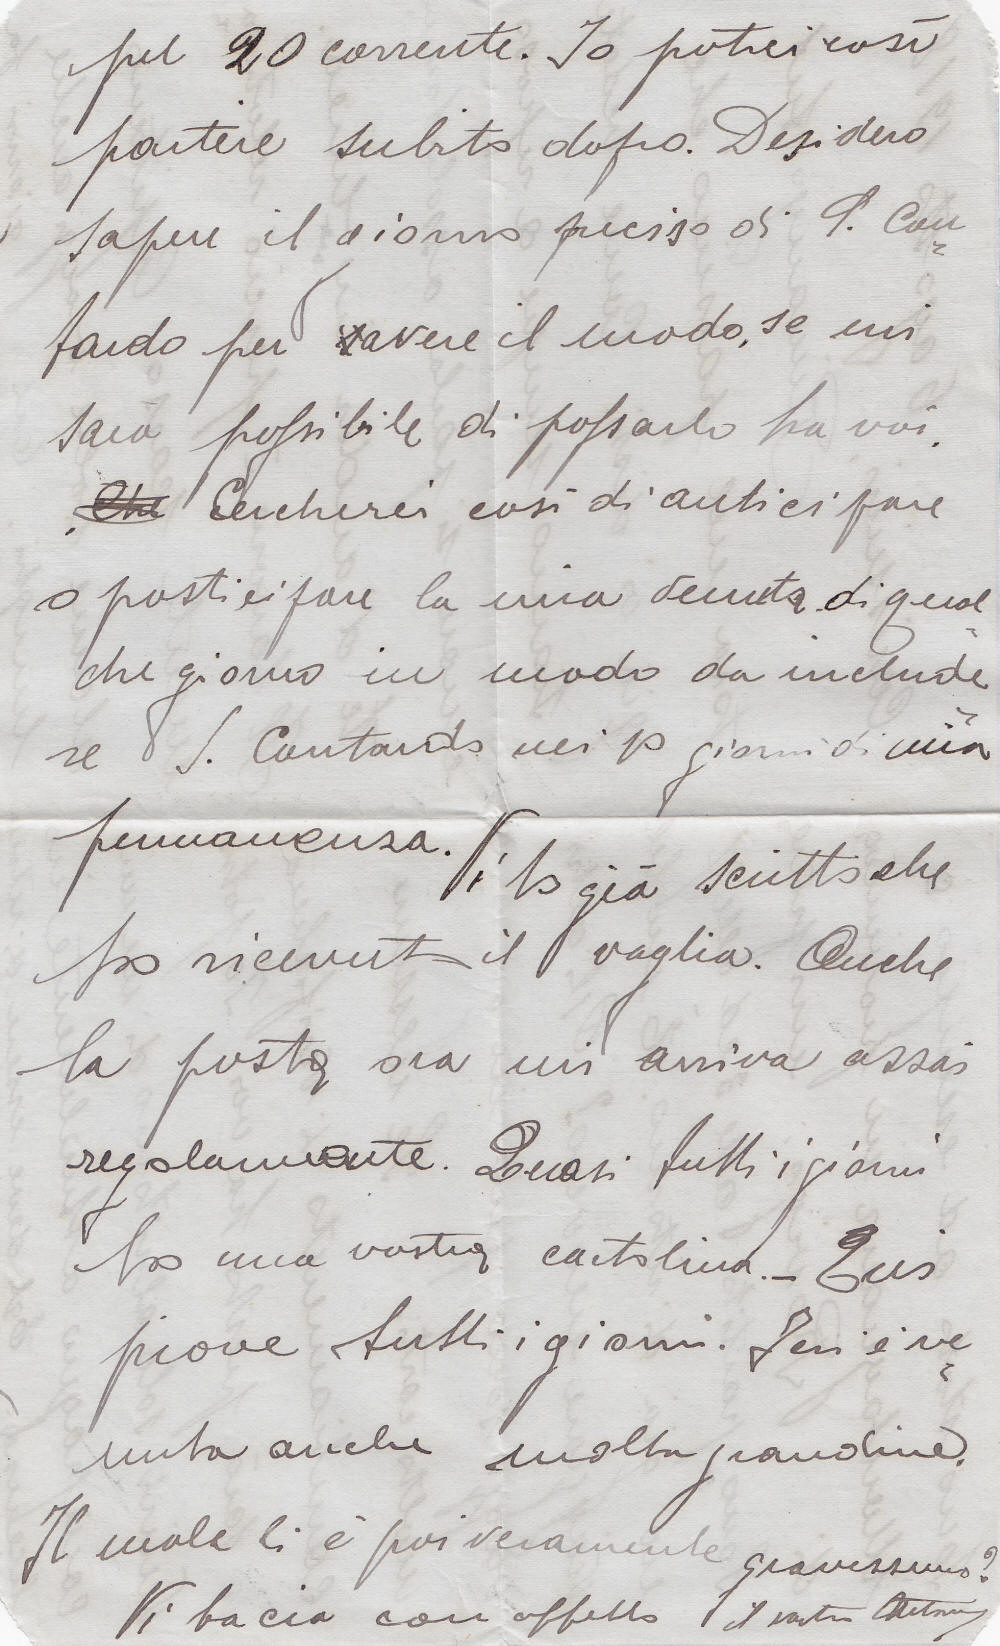 pel 20 corrente. Io potrei così
partire subito dopo. Desidero
sapere il giorno preciso di S. Con=
tardo per avere il modo, se mi
sarà possibile di passarlo fra voi.
Che Cercherei così di anticipare
o posticipare la mia venuta di qual=
che giorno in modo da include=
re S. Contardo nei giorni di mia
permanenza. Vi ho già scritto che
ho ricevuto il vaglia. Anche
la posta ora mi arriva assai
regolarmente. Quasi tutti i giorni
ho una vostra cartolina. – Qui
piove tutti i giorni. Ieri è ve=
nuta anche molta grandine.
Il male lì è poi veramente gravissimo?
Vi bacia con affetto il vostro